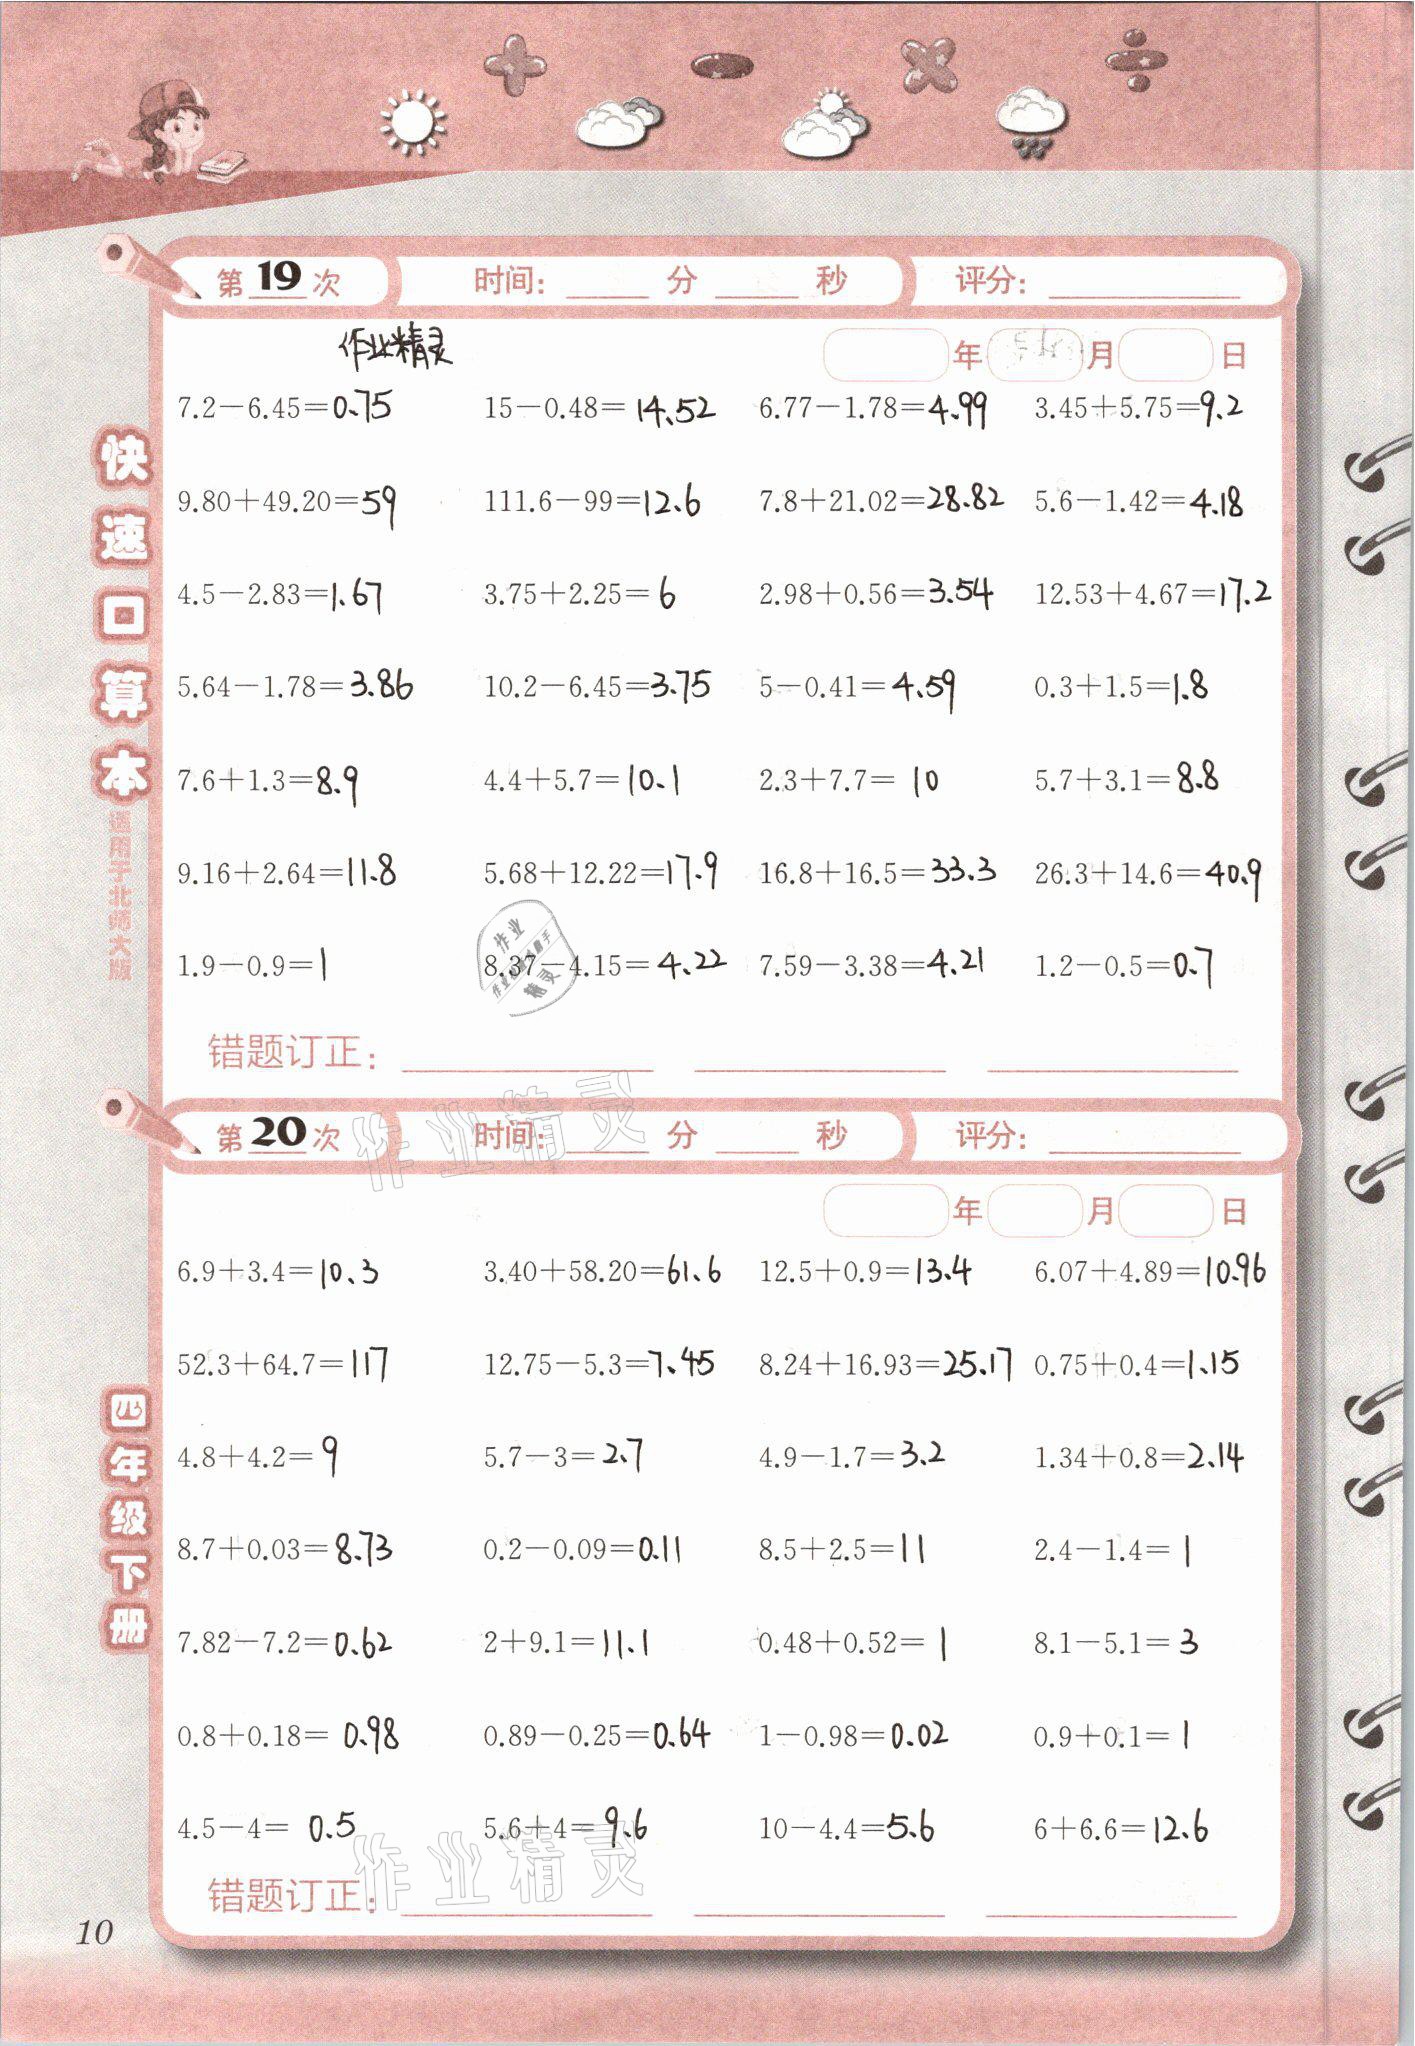 第 19 次 时间: 分 秒 评分:
作业精灵
年 月 日
7.2-6.45=0.75 15-0.48=14.52 6.77-1.78=4.99 3.45+5.75=9.2
9.80+49.20=59 111.6-99=12.6 7.8+21.02=28.82 5.6-1.42=4.18
4.5-2.83=1.67 3.75+2.25=6 2.98+0.56=3.54 12.53+4.67=17.2
5.64-1.78=3.86 10.2-6.45=3.75 5-0.41=4.59 0.3+1.5=1.8
7.6+1.3=8.9 4.4+5.7=10.1 2.3+7.7=10 5.7+3.1=8.8
9.16+2.64=11.8 5.68+12.22=17.9 16.8+16.5=33.3 26.3+14.6=40.9
1.9-0.9=1 8.37-4.15=4.22 7.59-3.38=4.21 1.2-0.5=0.7
作业
精灵
错题订正:
第 20 次 时间: 分 秒 评分:
作业精灵
年 月 日
6.9+3.4=10.3 3.40+58.20=61.6 12.5+0.9=13.4 6.07+4.89=10.96
52.3+64.7=117 12.75-5.3=7.45 8.24+16.93=25.17 0.75+0.4=1.15
4.8+4.2=9 5.7-3=2.7 4.9-1.7=3.2 1.34+0.8=2.14
8.7+0.03=8.73 0.2-0.09=0.11 8.5+2.5=11 2.4-1.4=1
7.82-7.2=0.62 2+9.1=11.1 0.48+0.52=1 8.1-5.1=3
0.8+0.18=0.98 0.89-0.25=0.64 1-0.98=0.02 0.9+0.1=1
4.5-4=0.5 5.6+4=9.6 10-4.4=5.6 6+6.6=12.6
作业精灵
错题订正:
快速口算本
适用于北师大版
四年级下册
10